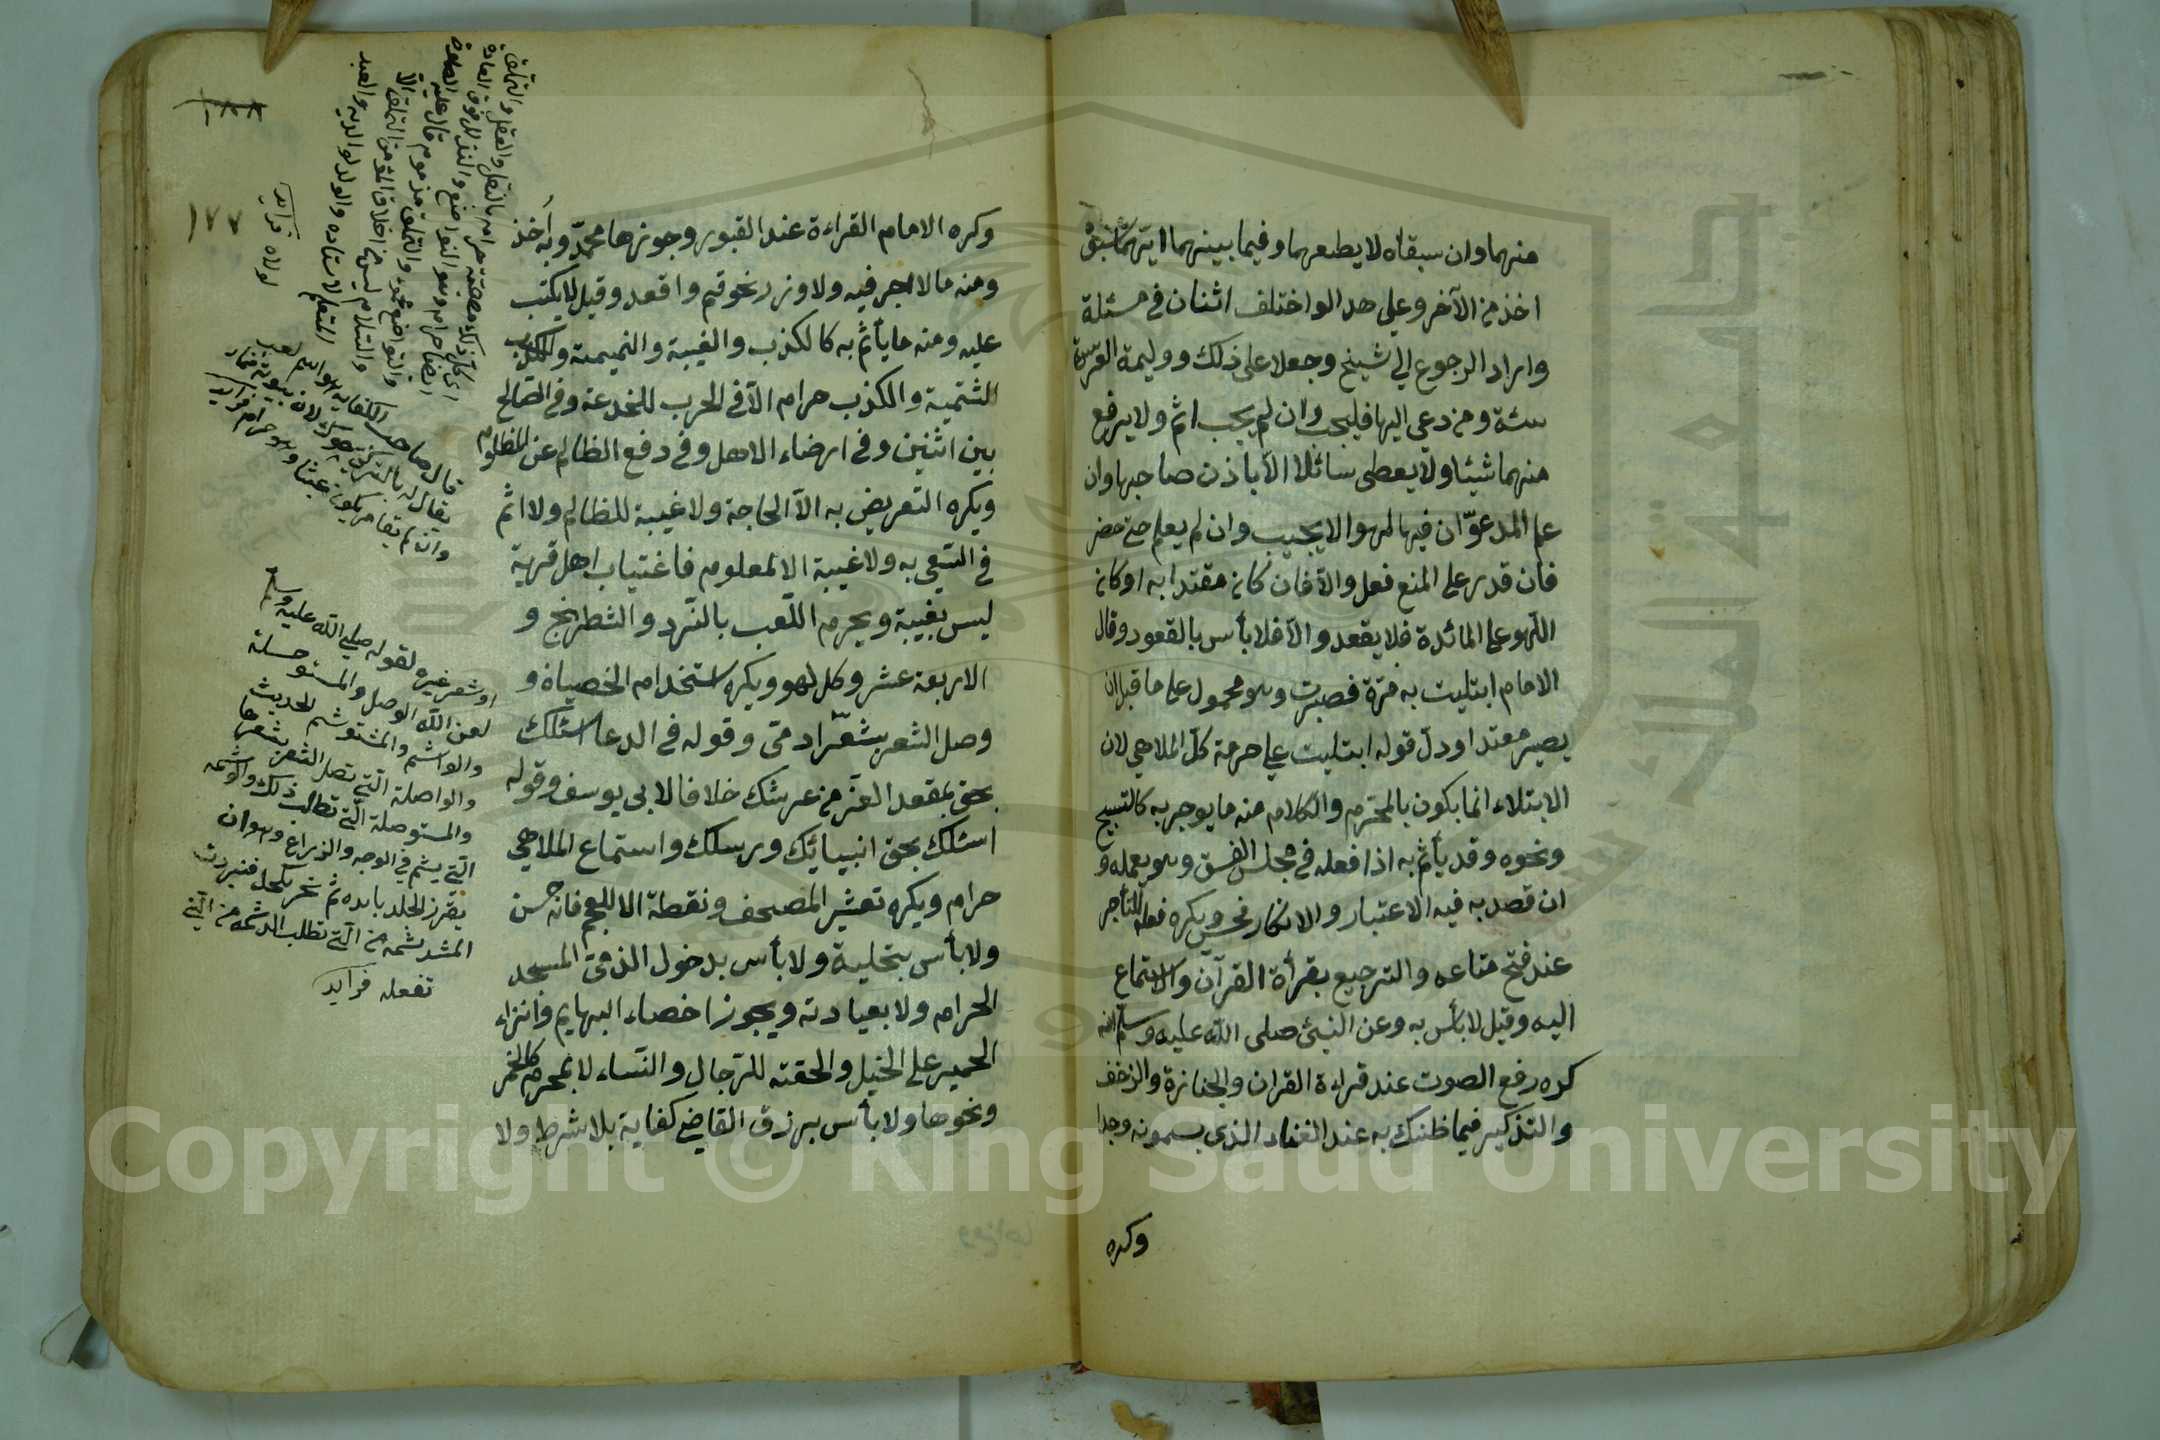 منهما وان سبقاه لا يطعمهما وفيما بينهما ايتهما سبق
اخذ من الآخر وعلى هذا لو اختلف اثنان في مسئلة
وارادا الرجوع الى شيخ وجعلا على ذلك ووليمة العرس
سنة ومن دعى اليها فليجب وان لم يجب اثم ولا يرفع
منهما شيئا ولا يعطى سائلا الا باذن صاحبها وان
علم المدعوّ ان فيها لهوا لا يجيب وان لم يعلم حتى حضر
فان قدر على المنع فعل والا فان كان مقتدا به او كان
اللهو على المائدة فلا يقعد والا فلا بأس بالقعود وقال
الامام ابتليت به مرّة فصبرت وهو محمول على ما قبل ان
يصير مقتدا ودلّ قوله ابتليت على حرمة كلّ الملاهي لان
الابتلاء انما يكون بالمحرّم والكلام منه ما يوجر به كالتسبيح
ونحوه وقد يأثم به اذا فعله في مجلس الفسق وهو يعمله و
ان قصد به فيه الاعتبار والانكار فحسن ويكره فعله للتاجر
عند فتح متاعه والترجيع بقرأة القرآن والاستماع
اليه وقيل لا بأس به وعن النبى صلى الله عليه وسلم انه
كره رفع الصوت عند قراءة القران والجنازة والزحف
والتذكير فيما ظنك به عند الغناء الذى يسمونه وجدا
وكره
وكره الامام القراءة عند القبور وجوزها محمّد وبه اخذ
ومنه ما لا اجر فيه ولا وزر نحو قم واقعد وقيل لا يكتب
عليه ومنه ما يأثم به كالكذب والغيبة والنميمة
الشتمية والكذب حرام الا في الحرب للخدعة وفي الصّالح
بين اثنين وفي ارضاء الاهل وفي دفع الظالم عن المظلوم
ويكره التعريض به الا الحاجة ولا غيبة للظالم ولا اثم
في السّعي به ولا غيبة الا لمعلوم فاغتياب اهل قرية
ليس بغيبة ويحرم اللّعب بالنّرد والشطرنج و
الاربعة عشر وكل لهو ويكره استخدام الخصيان و
وصل الشعر بشعر ادمّى وقوله في الدعا اسئلك
بحق بمقعد العزّ من عرشك خلافا لابي يوسف وقوله
اسئلك بحق انبيائك ورسلك واستماع الملاهي
حرام ويكره تعشير المصحف ونقطة الا للعجم فانه حسن
ولا بأس بتحليه ولا بأس بدخول الذمّى المسجد
الحرام ولا بعيادته ويجوز اخصاء البهايم وانزاء
الحمير على الخيل والحقنه للرّجال والنّساء لا بمحرم كالخمر
ونحوها ولا بأس برزق القاضى كفاية بلا شرط ولا
١٧٧
والتواضع محمود والتملق مذموم قال عليه
والسّلام ليس من اخلاق المؤمن التملق الا
للمتعلم لاستاده والولد لوالديه والعبد
لولاه فرايد
او شعر غيره لقوله صلى الله عليه وسلم
لعن الله الوصل والمستوصلة
والواشم والمستوشم الحديث
والواصلة الّتي تصل الشعر بشعرها
والمستوصلة الّتي تطلب ذلك والوشمه
الّتي يشم في الوجه والذراع وهو ان
تفعله فرايد
Copyright © King Saud University